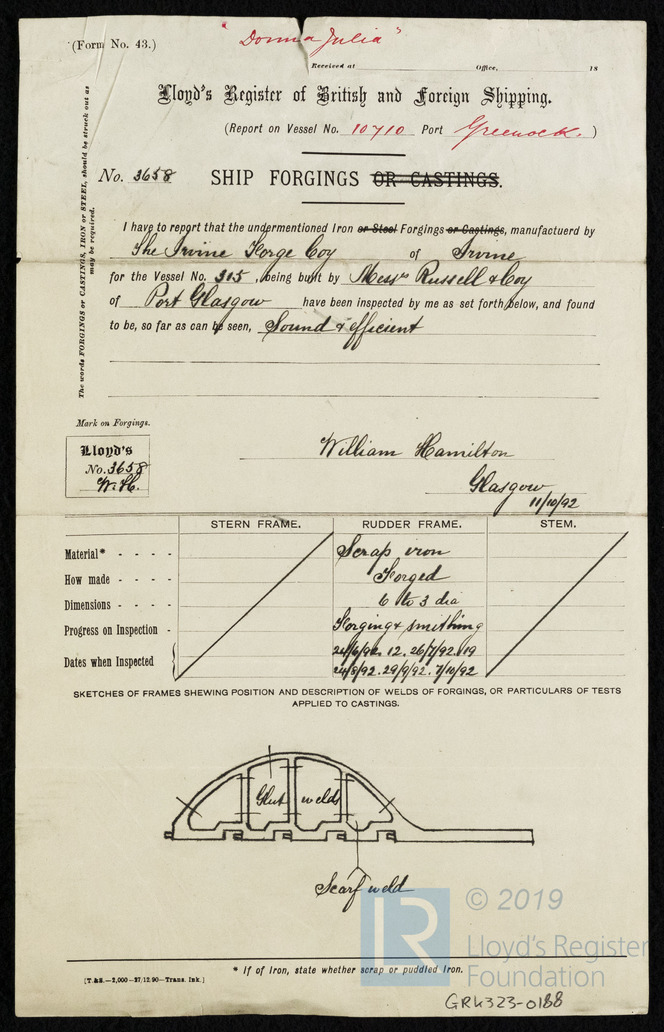 (Form No. 43.)
"Donna Julia"
Received at Office, 18
Lloyd's Register of British and Foreign Shipping.
(Report on Vessel No. 10710 Port Greenock.)
No. 3658 SHIP FORGINGS OR CASTINGS.
The words FORGINGS or CASTINGS, IRON or STEEL, should be struck out as
may be required.
I have to report that the undermentioned Iron or Steel Forgings or Castings, manufactuerd by
The Irvine Forge Coy of Irvine
for the Vessel No. 315, being built by Messrs Russell & Coy
of Port Glasgow have been inspected by me as set forth below, and found
to be, so far as can be seen, Sound & efficient
Mark on Forgings.
Lloyd's
No. 3658
W.H.
William Hamilton
Glasgow
11/10/92
STERN FRAME. RUDDER FRAME. STEM.
Material* - - - - Scrap iron
How made - - - - Forged
Dimensions - - - - 6 to 3 dia
Progress on Inspection - Forging & smithing
Dates when Inspected 24/6/92. 12. 26/7/92. 19
24/8/92. 29/9/92. 7/10/92
SKETCHES OF FRAMES SHEWING POSITION AND DESCRIPTION OF WELDS OF FORGINGS, OR PARTICULARS OF TESTS
APPLIED TO CASTINGS.
Glut welds
Scarf weld
LR
© 2019
Lloyd's Register
Foundation
* If of Iron, state whether scrap or puddled Iron.
[T.&S.—2,000—27/12/90—Trans. Ink.]
GRK323-0188